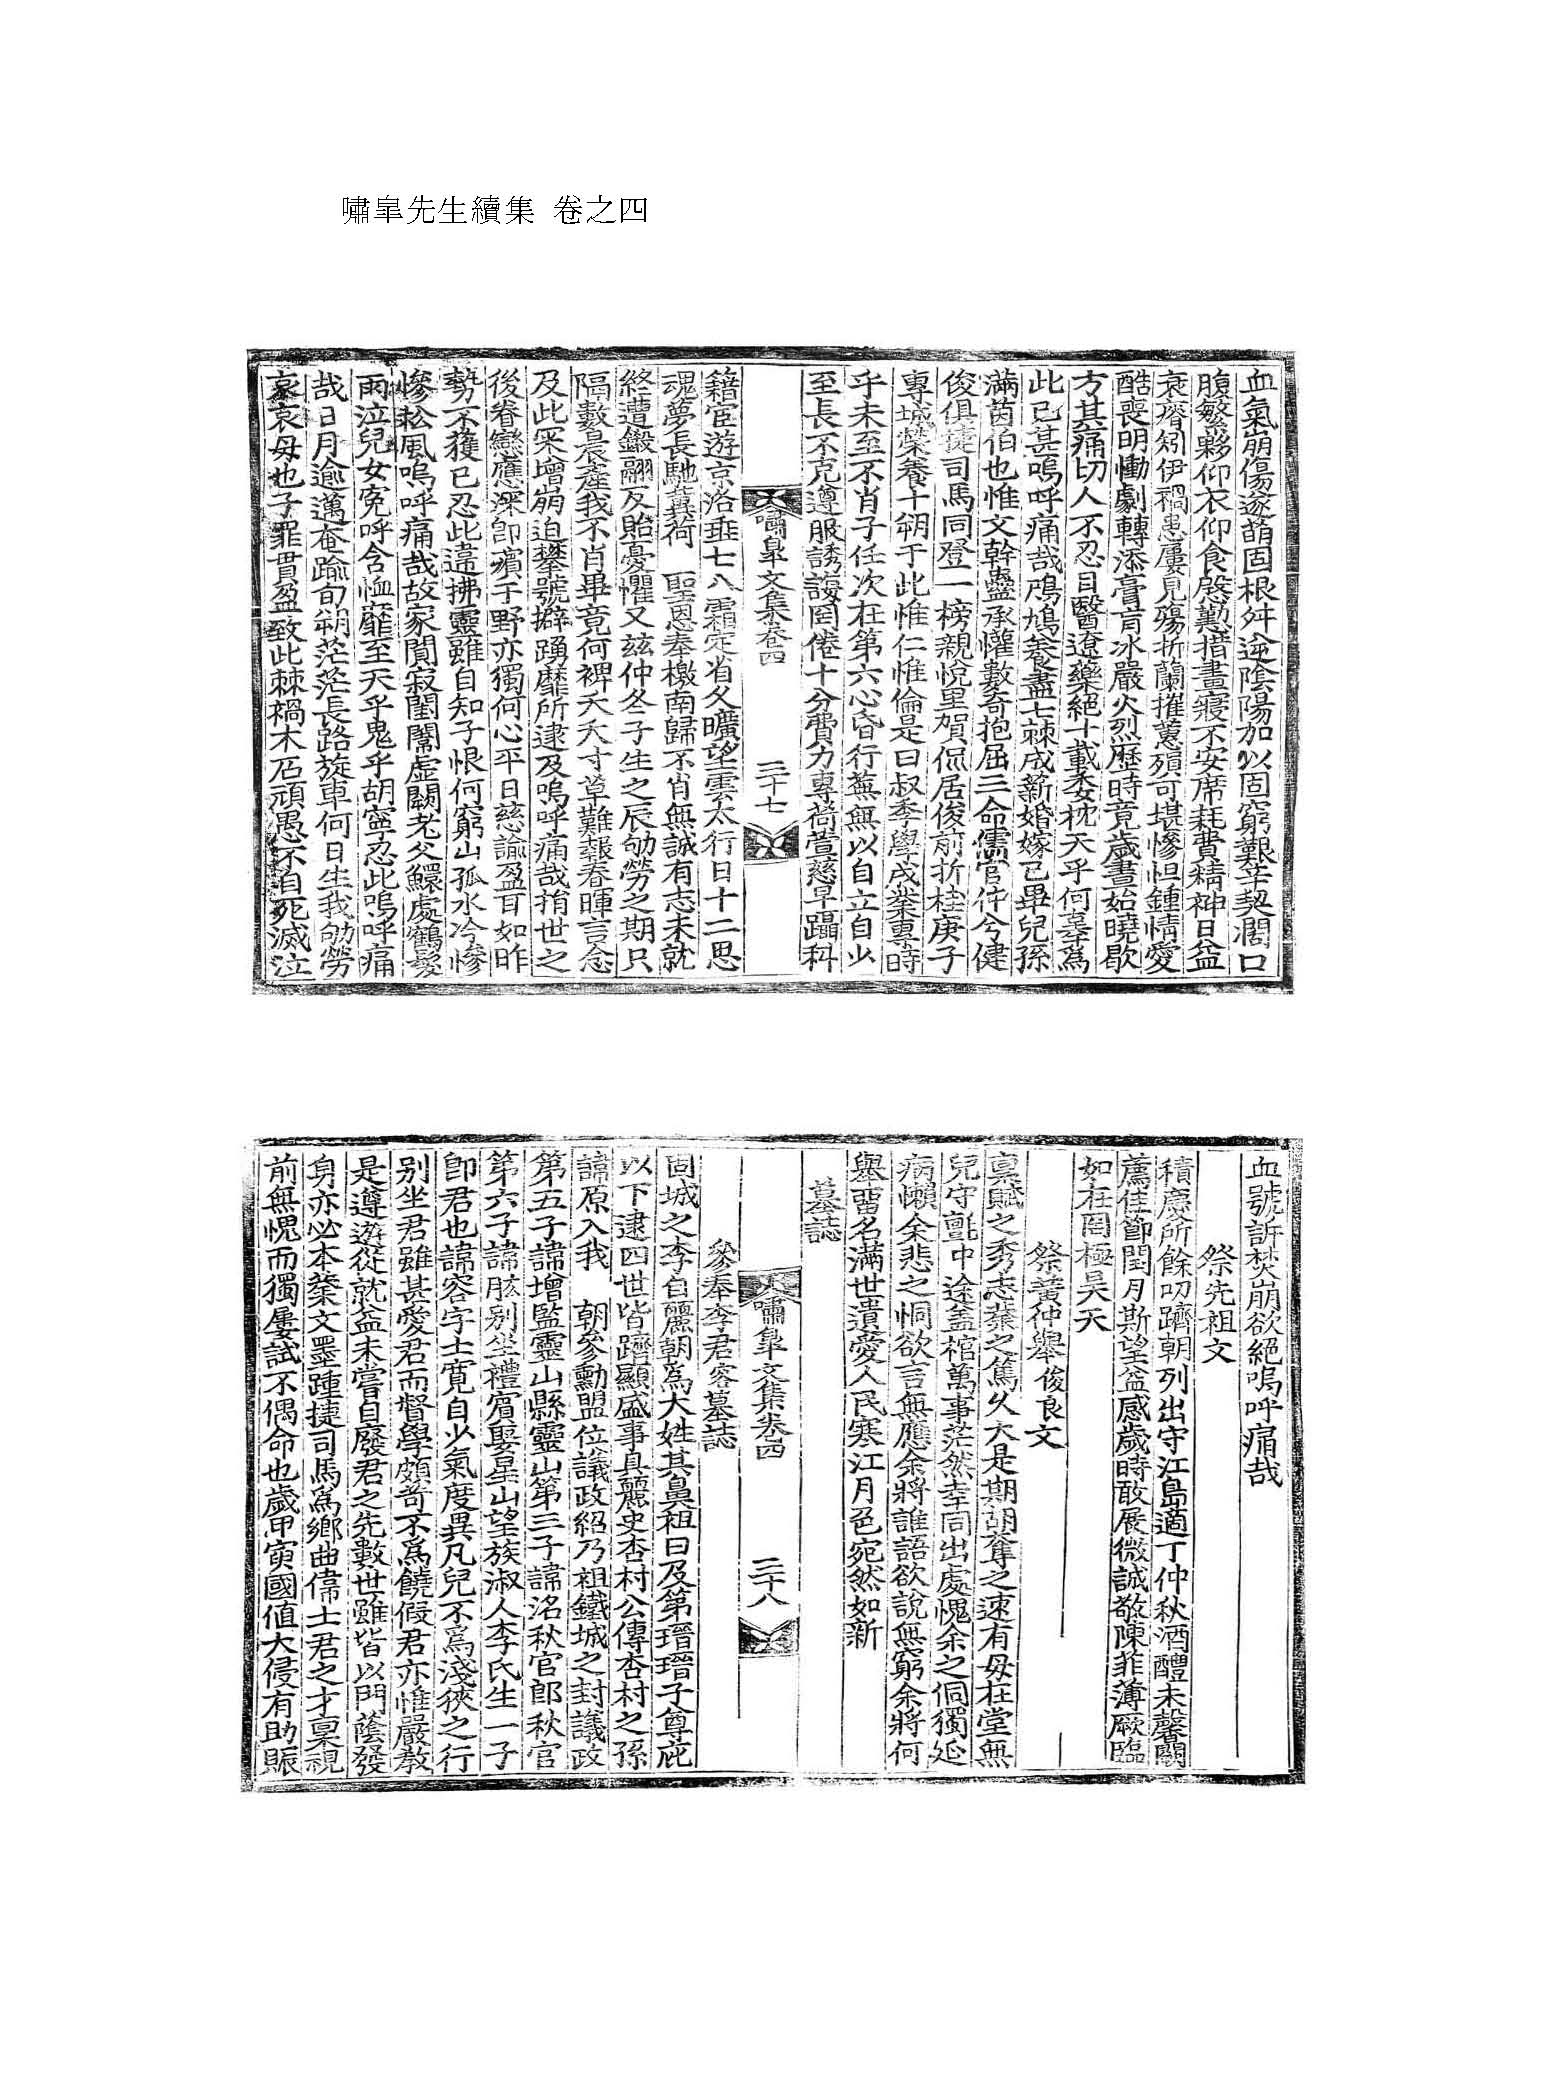 嘯皐先生續集 卷之四
血氣崩傷遂萌固根舛逆陰陽加以固窮艱辛契濶口
腹繁夥仰衣仰食殷懃措晝寢不安席耗費精神日益
衰瘠矧伊禍患屢見殤折蘭摧蕙殞可堪慘怛鍾情愛
酷喪明慟劇轉添膏肓冰嚴火烈歷時竟歲晝始曉歇
方其痛切人不忍目醫遼藥絕十載委枕天乎何辜爲
此已甚嗚呼痛哉鳲鳩養盡七棘成薪婚嫁已畢兒孫
滿茵伯也惟文幹蠱承懽數奇抱屈三命儒官仲兮健
俊俱㨗司馬同登一榜親悅里賀侃居俊前折桂庚子
專城榮養十朔于此惟仁惟倫是曰叔季學成業專時
乎未至不肖子任次在第六心昏行蕪無以自立自少
至長不克遵服誘誨罔倦十分費力專荷萱慈早躡科
嘯皐文集卷四
三十七
籍宦遊京洛垂七八霜定省久曠望雲太行日十二思
魂夢長馳冀荷 聖恩奉檄南歸不肖無誠有志未就
終遭鎩翮反貽憂懼又玆仲冬子生之辰劬勞之期只
隔數晨産我不肖畢竟何裨夭夭寸草難報春暉言念
及此罙增崩迫攀號擗踴靡所逮及嗚呼痛哉捐世之
後眷戀應深卽殯于野亦獨何心平日慈諭盈耳如昨
勢不獲已忍此違拂靈雖自知子恨何窮山孤水冷慘
慘松風嗚呼痛哉故家閴寂閨闈虛闃老父鰥處鶴髮
雨泣兒女寃呼含恤靡至天乎鬼乎胡寧忍此嗚呼痛
哉日月逾邁奄踰旬朔茫茫長路旋車何日生我劬勞
哀哀母也子罪貫盈致此棘禍木石頑愚不自死滅泣
血號訴焚崩欲絕嗚呼痛哉
祭先祖文
積慶所餘叨躋朝列出守江島適丁仲秋酒醴未馨闕
薦佳節閏月斯望益感歲時敢展微誠敬陳菲薄厥臨
如在罔極昊天
祭黃仲擧俊良文
禀賦之秀志業之篤久大是期胡奪之速有母在堂無
兒守氈中途蓋棺萬事茫然幸同出處愧余之侗獨延
病懶余悲之恫欲言無應余將誰語欲說無窮余將何
擧畱名滿世遺愛人民寒江月色宛然如新
墓誌
嘯皐文集卷四
三十八
參奉李君容墓誌
固城之李自麗朝爲大姓其鼻祖曰及第瑨瑨子尊庇
以下逮四世皆躋顯盛事具麗史杏村公傳杏村之孫
諱原入我 朝參勳盟位議政紹乃祖鐵城之封議政
第五子諱增監靈山縣靈山第三子諱洺秋官郎秋官
第六子諱肱別坐禮賓娶星山望族淑人李氏生一子
卽君也諱容字士寬自少氣度異凡兒不爲淺狹之行
别坐君雖甚愛君而督學頗苛不爲饒假君亦惟嚴敎
是遵遊從就益未嘗自廢君之先數世雖皆以門蔭發
身亦必本業文墨踵捷司馬爲鄉曲偉士君之才稟視
前無愧而獨屢試不偶命也歲甲寅國値大侵有助賑